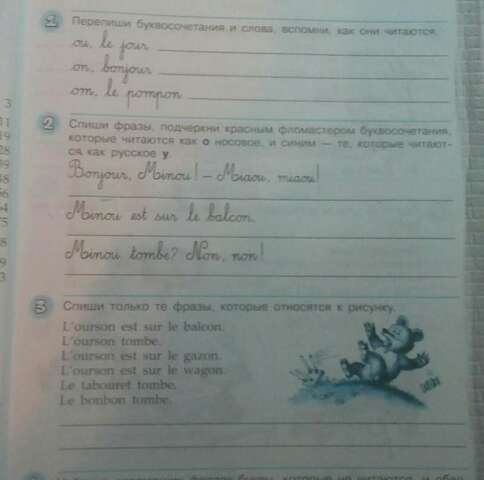 1 Перепиши буквосочетания и слова, вспомни, как они читаются.
ou, le jour
on, bonjour
om, le pompon
3
11
19
28
2 Спиши фразы, подчеркни красным фломастером буквосочетания,
которые читаются как о носовое, и синим — те, которые читают-
ся как русское у.
Bonjour, Minou! – Miaou, miaou!
Minou est sur le balcon.
Minou tombe? Non, non!
8
9
3
3 Спиши только те фразы, которые относятся к рисунку.
L'ourson est sur le balcon.
L'ourson tombe.
L'ourson est sur le gazon.
L'ourson est sur le wagon.
Le tabouret tombe.
Le bonbon tombe.